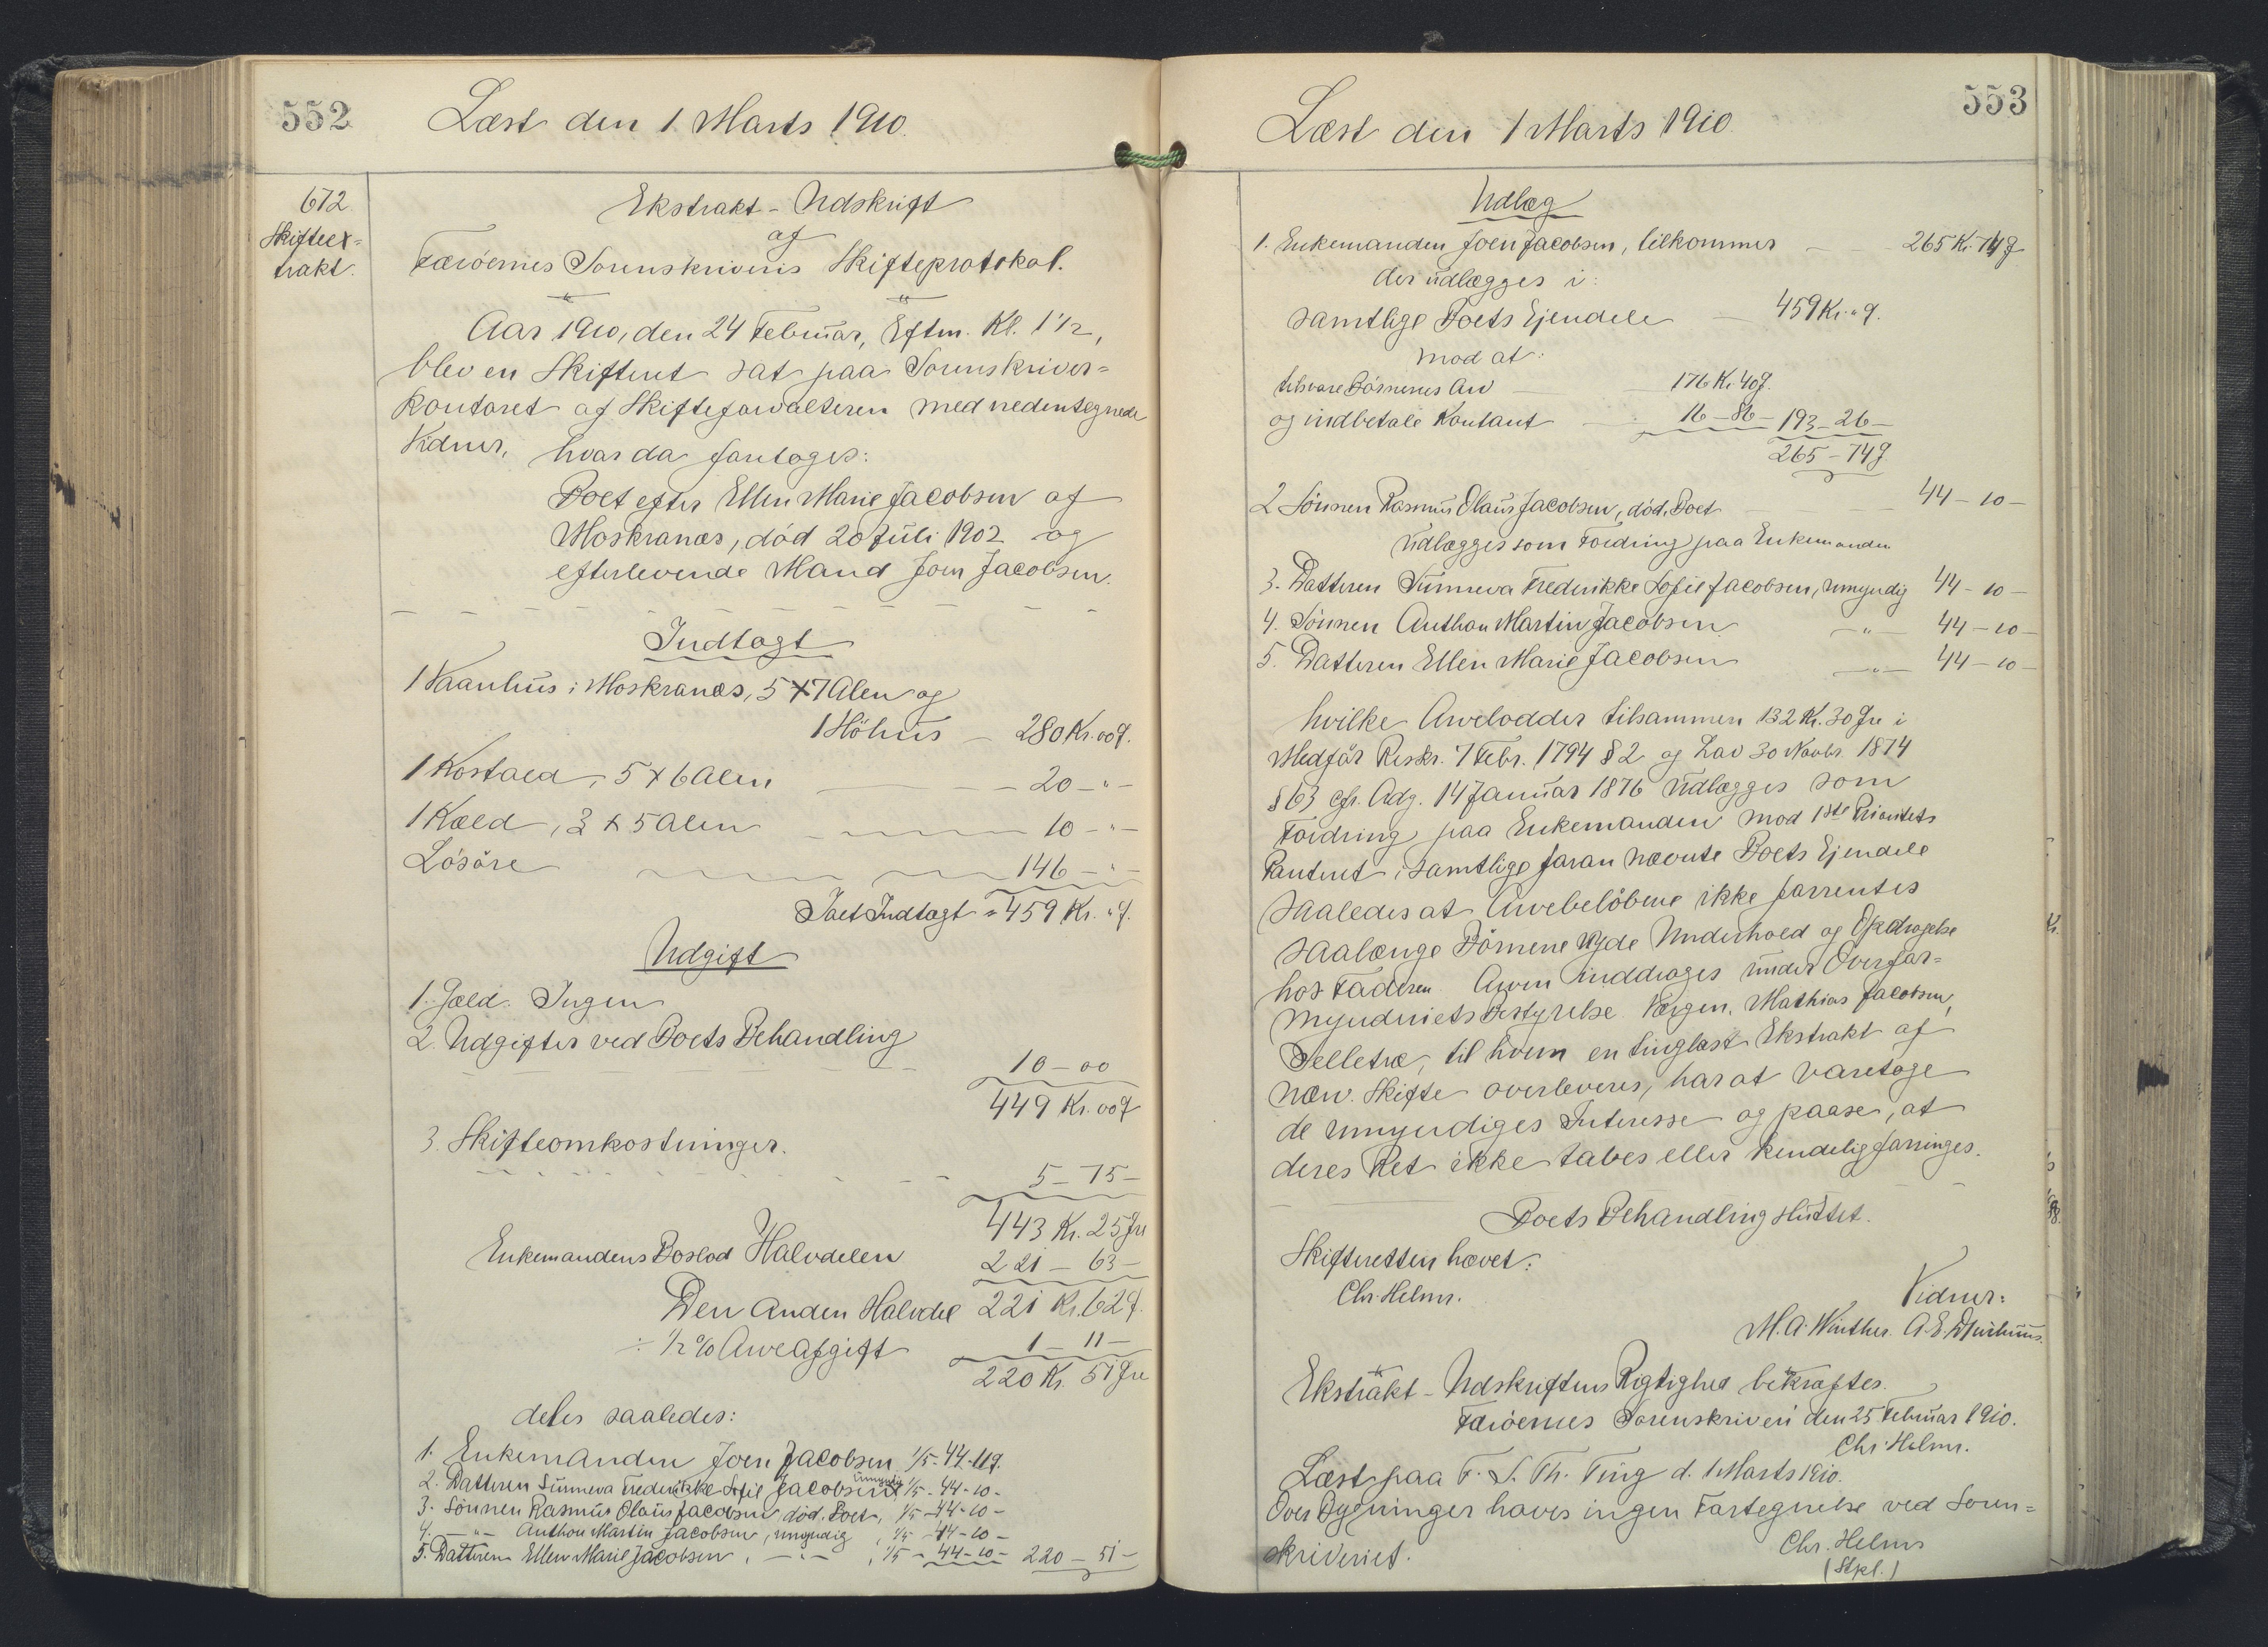 552
Læst den 1. Marts 1910.
672.
Skifteex-
trakt.
Ekstrakt-Udskrift
af
Færöernes Sorenskriveris Skifteprotokol.
Aar 1910, den 24 Februar, Eftm. Kl. 1 1/2,
blev en Skifteret sat paa Sorenskriver-
kontoret af Skifteforvalteren med nedentegnede
Vidner, hvor da foretoges:
Boet efter Ellen Marie Jacobsen af
Moskranæs, död 20 Juli 1902 og
efterlevende Mand Joen Jacobsen.
Indtægt
1 Vaanhus i Moskranæs, 5 x 7 Alen og
1 Höhus - 280 Kr. 00 Ø.
1 Kostald, 5 x 6 Alen - 20 - " -
1 Kæld, 3 x 5 Alen - 10 - " -
Lösöre - 146 - " -
Boet Indtægt = 459 Kr. " Ø.
Udgift
1. Gæld. Ingen
2. Udgifter ved Boets Behandling
10 - 00
449 Kr. 00 Ø
3. Skifteomkostninger.
5 - 75 -
443 Kr. 25 Øre
Enkemandens Boslod Halvdelen 221 - 63 -
Den anden Halvdel 221 Kr. 62 Ø.
÷ 1/2 % Arveafgift 1 - 11 -
220 Kr. 51 Øre
deles saaledes:
1. Enkemanden Joen Jacobsen 1/5 - 44 - 11 Ø.
2. Datteren Sunneva Frederikke Sofie Jacobsen umyndig 1/5 - 44 - 10 -
3. Sönnen Rasmus Olaus Jacobsen, död, Boet, 1/5 - 44 - 10 -
4. - " - Anthon Martin Jacobsen, umyndig, 1/5 - 44 - 10 -
5. Datteren Ellen Marie Jacobsen, - " - , 1/5 - 44 - 10 - 220 - 51 -
553
Læst den 1 Marts 1910.
Udlæg
1. Enkemanden Joen Jacobsen, tilkommer - 265 Kr. 74 Ø
der udlægges i:
samtlige Boets Ejendele - 459 Kr. " Ø.
mod at:
tilsvare Börnenes Arv - 176 Kr. 40 Ø.
og indbetale Kontant - 16 - 86 - 193 - 26 -
265 - 74 Ø.
2 Sönnen Rasmus Olaus Jacobsen, död, Boet - 44 - 10 -
Udlægges som Fordring paa Enkemanden
3. Datteren Sunneva Frederikke Sofie Jacobsen, umyndig 44 - 10 -
4. Sönnen Anthon Martin Jacobsen - " - 44 - 10 -
5. Datteren Ellen Marie Jacobsen - " - 44 - 10 -
hvilke Arvelodder tilsammen 132 Kr. 30 Øre i
Medfør Reskr. 7 Febr. 1794 § 2 og Lov 30 Novbr. 1874
§ 63 cfr. Adg. 14 Januar 1876 Udlægges som
Fordring paa Enkemanden mod 1ste Prioritets
Panteret i samtlige foran nævnte Boets Ejendele
saaledes at Arvebelöbene ikke forrentes
saalænge Börnene nyde Underhold og Opdragelse
hos Faderen. Arven inddrages under Overfor-
mynderiets Bestyrelse. Værgen, Mathias Jacobsen,
Selletræ, til hvem en tinglæst Ekstrakt af
nærv. Skifte overleveres, har at varetage
de umyndiges Interesse og paase, at
deres Ret ikke tabes eller kendelig forringes.
Boets Behandling sluttet.
Skifteretten hævet.
Chr. Helms.
Vidner:
M. A. Winther. A. E.
Ekstrakt-Udskriftens Rigtighed bekræftes.
Færöernes Sorenskriveri den 25 Februar 1910.
Chr. Helms.
Læst paa F. S. Th. Ting d. 1 Marts 1910.
Over Bygninger haves ingen Fortegnelse ved Soren-
skriveriet.
Chr. Helms
(Stpl.)